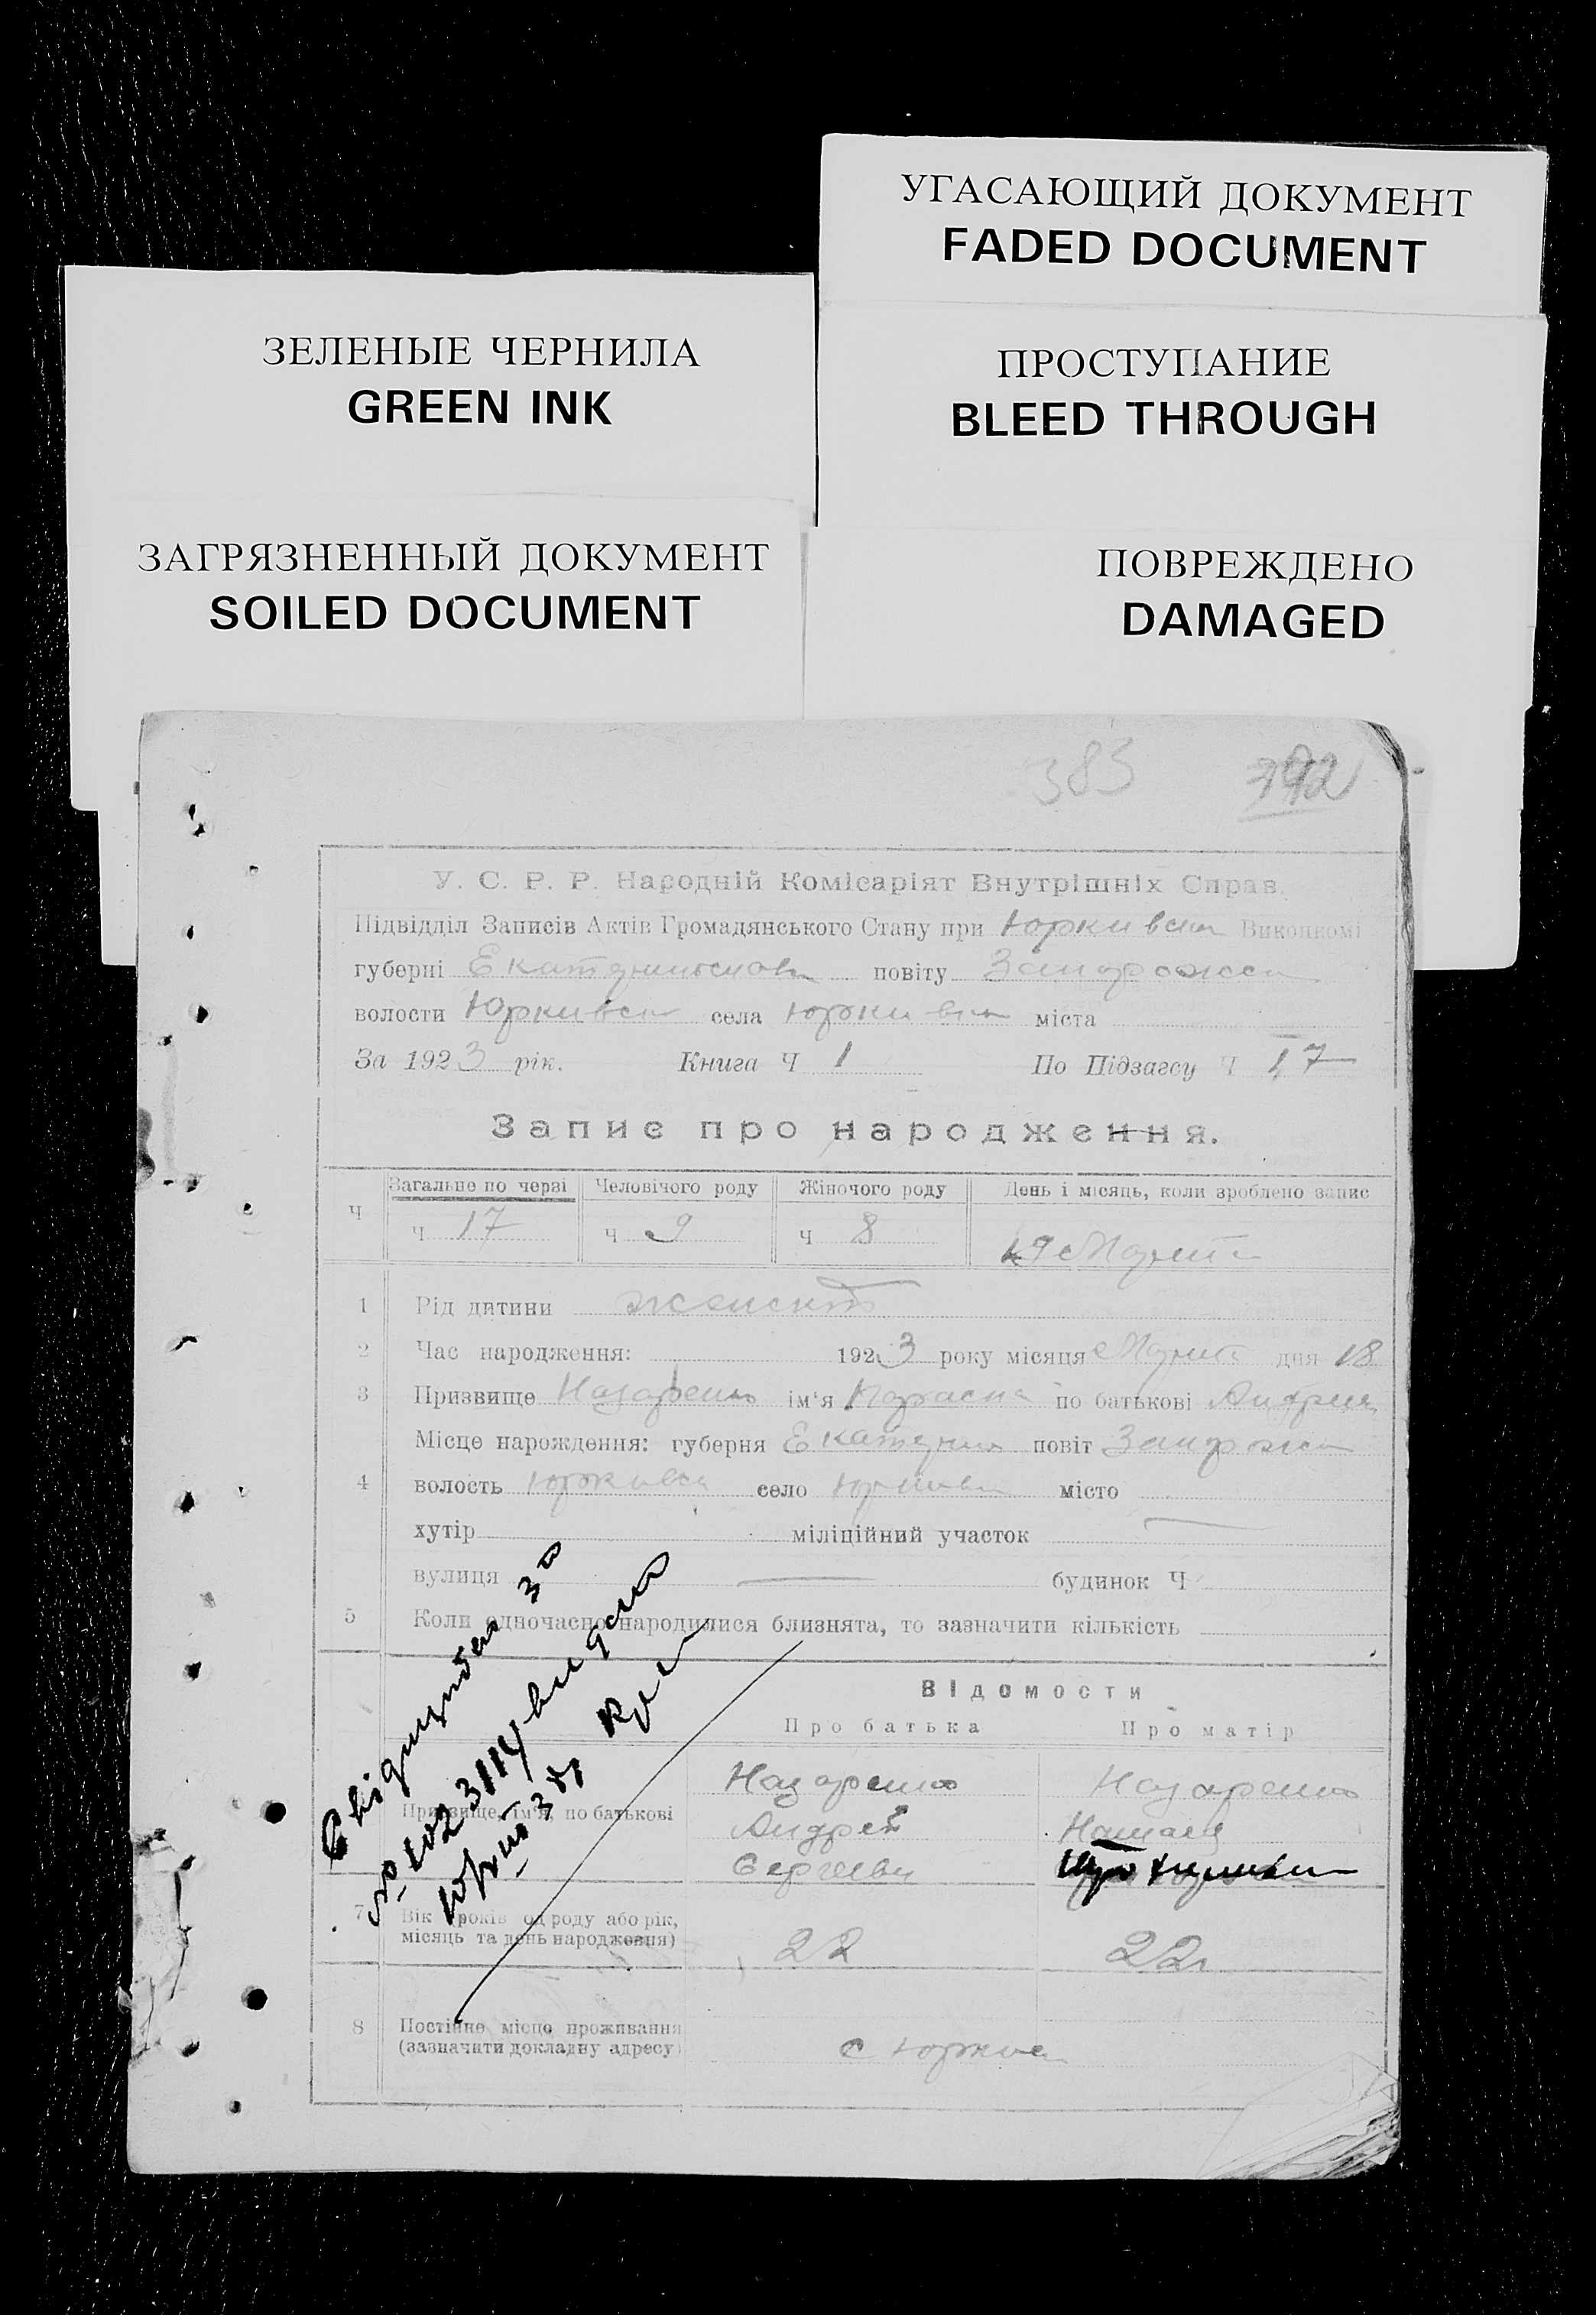 УГАСАЮЩИЙ ДОКУМЕНТ
FADED DOCUMENT
ЗЕЛЕНЫЕ ЧЕРНИЛА
GREEN INK
ПРОСТУПАНИЕ
BLEED THROUGH
ЗАГРЯЗНЕННЫЙ ДОКУМЕНТ
SOILED DOCUMENT
ПОВРЕЖДЕНО
DAMAGED
383 392
У. С. Р. Р. Народній Комісаріят Внутрішніх Справ.
Підвідділ Записів Актів Громадянського Стану при Юркивськ Виконкомі
губерні повіту
волости Юркивськ села Юркивка міста
За 1923 рік. Книга Ч 1 По Підзагсу Ч 17
Запис про народження.
Ч Загальне по черзі Человічого роду Жіночого роду День і місяць, коли зроблено запис
ч 17 ч 9 ч 8 19 Марта
1 Рід дитини женский
2 Час народження: 1923 року місяця Марта дня 18
3 Призвище Назаренко ім'я Параска по батькові
Місце нарождення: губерня повіт
4 волость село місто
хутір міліційний участок
вулиця будинок Ч
5 Коли одночасно народилися близнята, то зазначити кількість
Відомости
Про батька Про матір
Призвище, ім'я, по батькові Назаренко Назаренко
Андрей
Сергеевич
7 Вік (років од роду або рік, місяць та день народження) 22 22
8 Постійне місце проживання
(зазначити докладну адресу) с Юркивка